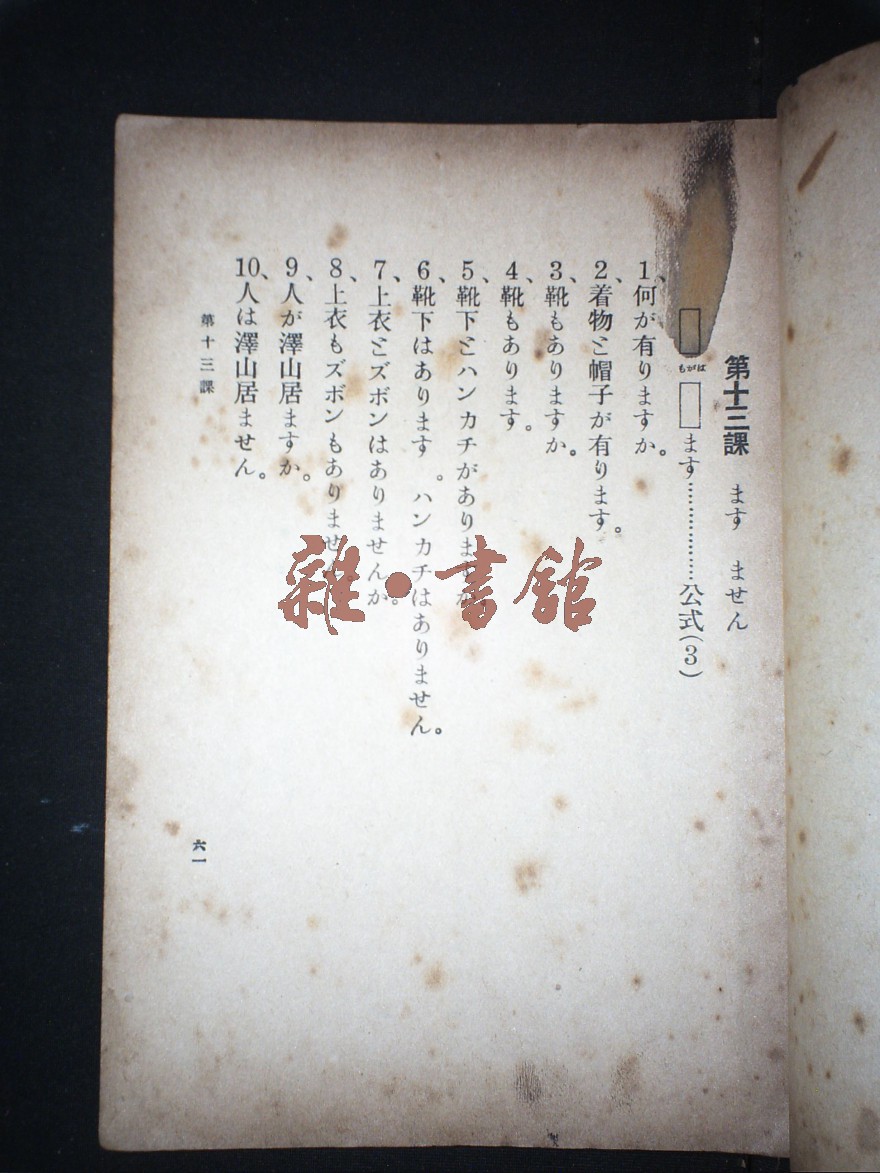 第十三課 ます ません
もがは ます………………公式(3)
1、何が有りますか。
2、着物と帽子が有ります。
3、靴もありますか。
4、靴もあります。
5、靴下とハンカチがあり
6、靴下はあります。ハンカチはありません。
7、上衣とズボンはありませんか。
8、上衣もズボンもありません
9、人が澤山居ますか。
10、人は澤山居ません。
第十三課
六一
雜•書館